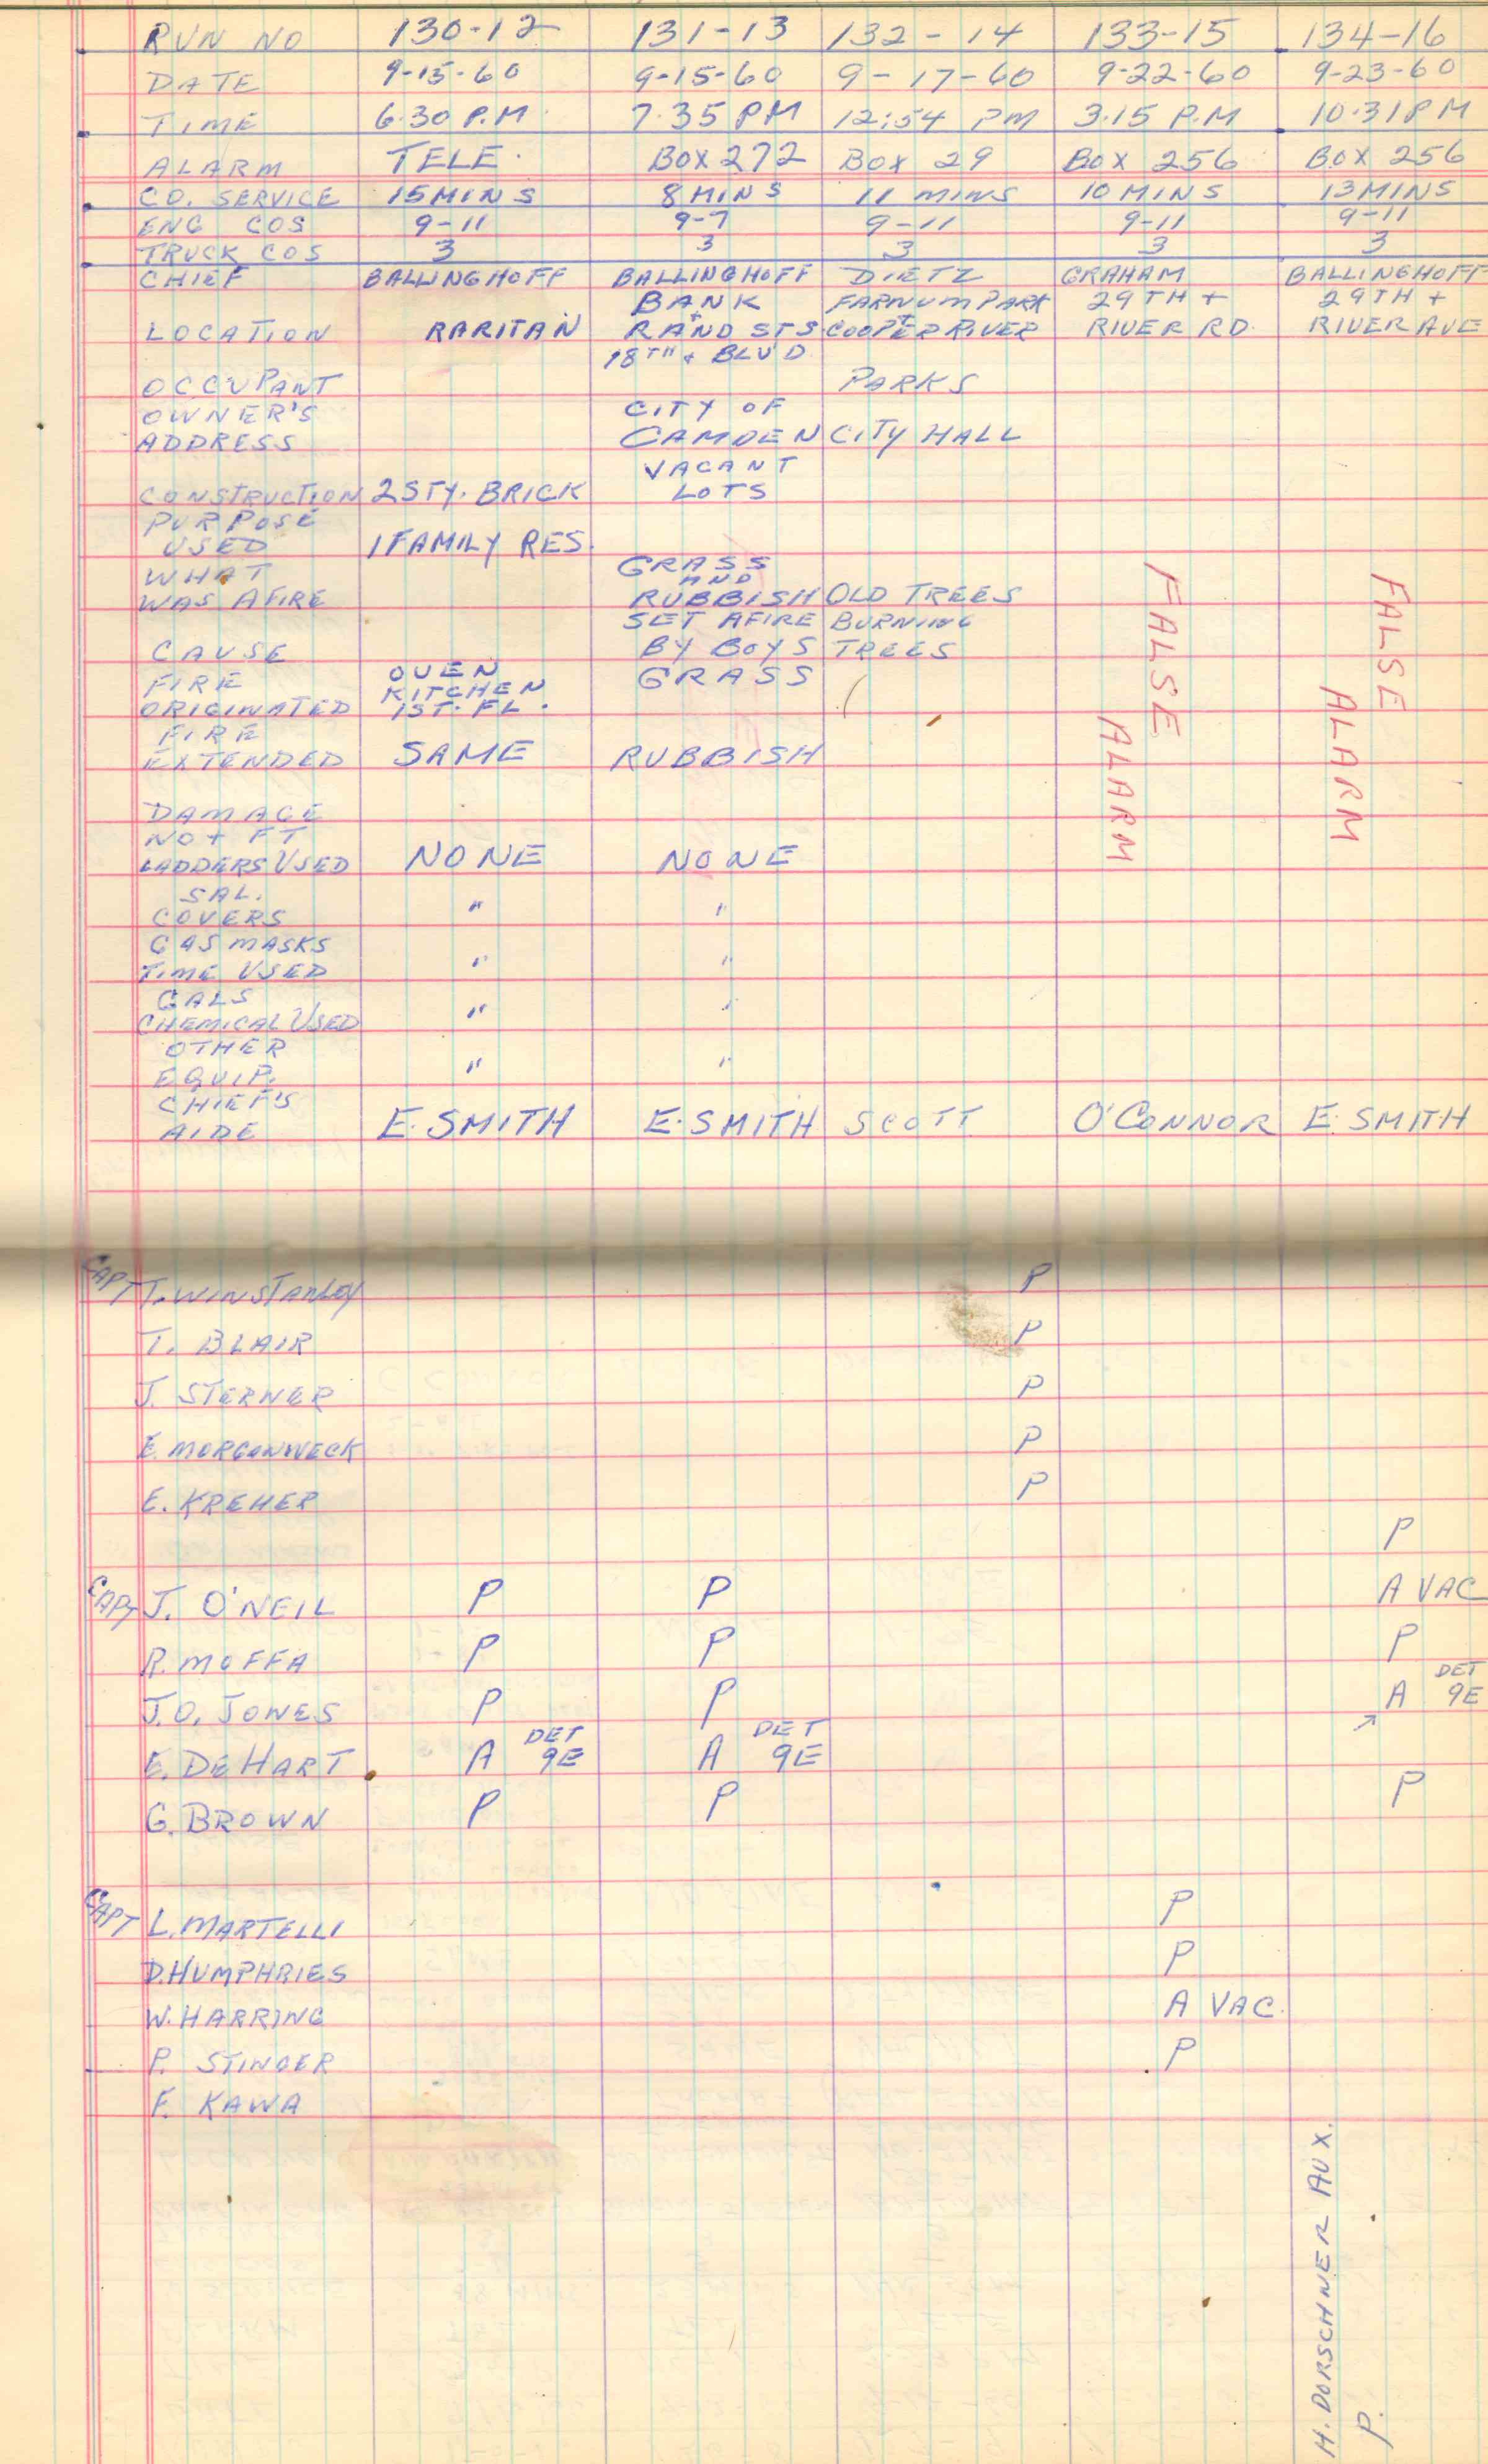 RUN NO 130-12 131-13 132-14 133-15 134-16
DATE 9-15-60 9-15-60 9-17-60 9-22-60 9-23-60
TIME 6.30 P.M. 7.35 PM 12:54 PM 3.15 P.M 10.31PM
ALARM TELE. BOX 272 BOX 29 BOX 256 BOX 256
CO. SERVICE 15 MINS 8 MINS 11 MINS 10 MINS 13 MINS
ENG COS 9-11 9-7 9-11 9-11 9-11
TRUCK COS 3 3 3 3 3
CHIEF BALLINGHOFF BALLINGHOFF DIETZ GRAHAM BALLINGHOFF
BANK FARNUM PARK 29TH + 29TH +
+ +
LOCATION RARITAN RAND STS COOPER RIVER RIVER RD. RIVER AVE
18TH + BLVD
OCCUPANT PARKS
OWNER'S CITY OF
ADDRESS CAMDEN CITY HALL
VACANT
CONSTRUCTION 2 STY. BRICK LOTS
PURPOSE
USED 1 FAMILY RES.
WHAT GRASS
AND
WAS AFIRE RUBBISH OLD TREES
SET AFIRE BURNING
CAUSE BY BOYS TREES
FIRE OVEN GRASS
KITCHEN
ORIGINATED 1ST. FL.
FIRE
EXTENDED SAME RUBBISH
FALSE
ALARM
FALSE
ALARM
DAMAGE
NO + FT
LADDERS USED NONE NONE
SAL.
COVERS " "
GAS MASKS
TIME USED " "
GALS
CHEMICAL USED " "
OTHER
EQUIP. " "
CHIEF'S
AIDE E. SMITH E. SMITH SCOTT O'CONNOR E. SMITH
CAPT T. WINSTANLEY P
T. BLAIR P
J. STERNER P
E. MORGONWECK P
E. KREHER P
P
CAPT J. O'NEIL P P A VAC
R. MOFFA P P P
DET
J.O. JONES P P A 9E
DET DET
E. DEHART A 9E A 9E
G. BROWN P P P
CAPT L. MARTELLI P
D. HUMPHRIES P
W. HARRING A VAC.
P. STINGER P
F. KAWA
H. DORSCHNER AUX.
P.